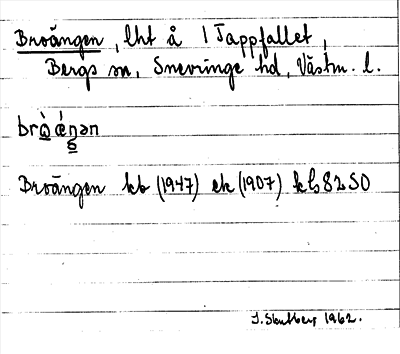 Broängen, lht å 1 Tappfallet,
Bergs sn, Snevringe hd, Västm. l.
brò̠ ǽŋən
Broängen kb (1947) ek (1907) kb 82 SO
1962.